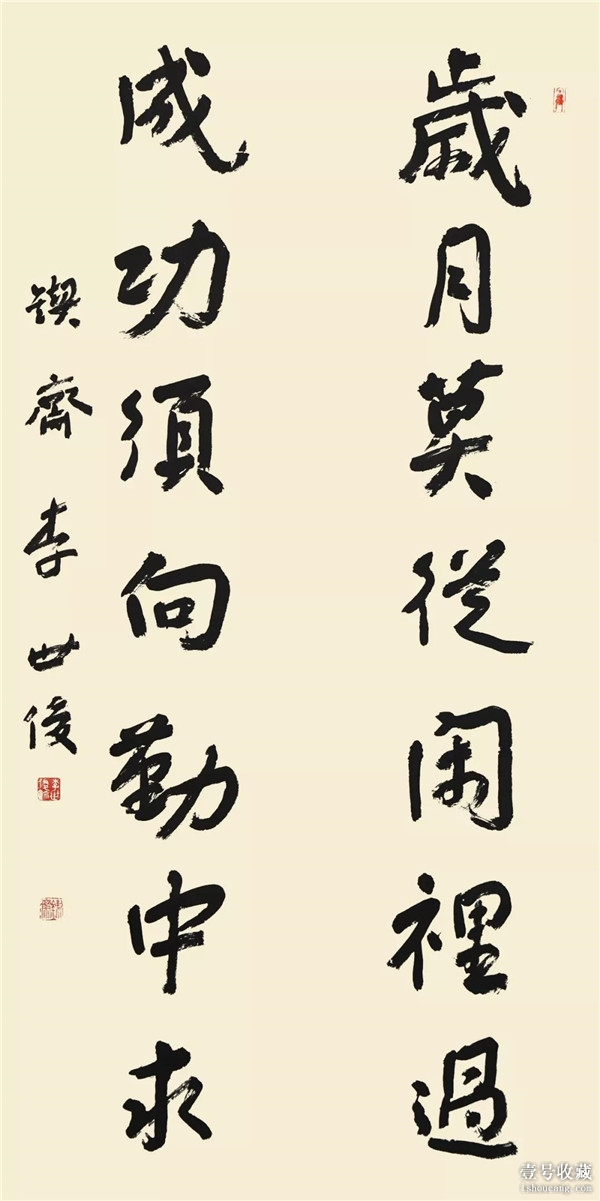 歲月莫從閑裡過
成功須向勤中求
鍥齋李世俊
壹号收藏
1shoucang.com